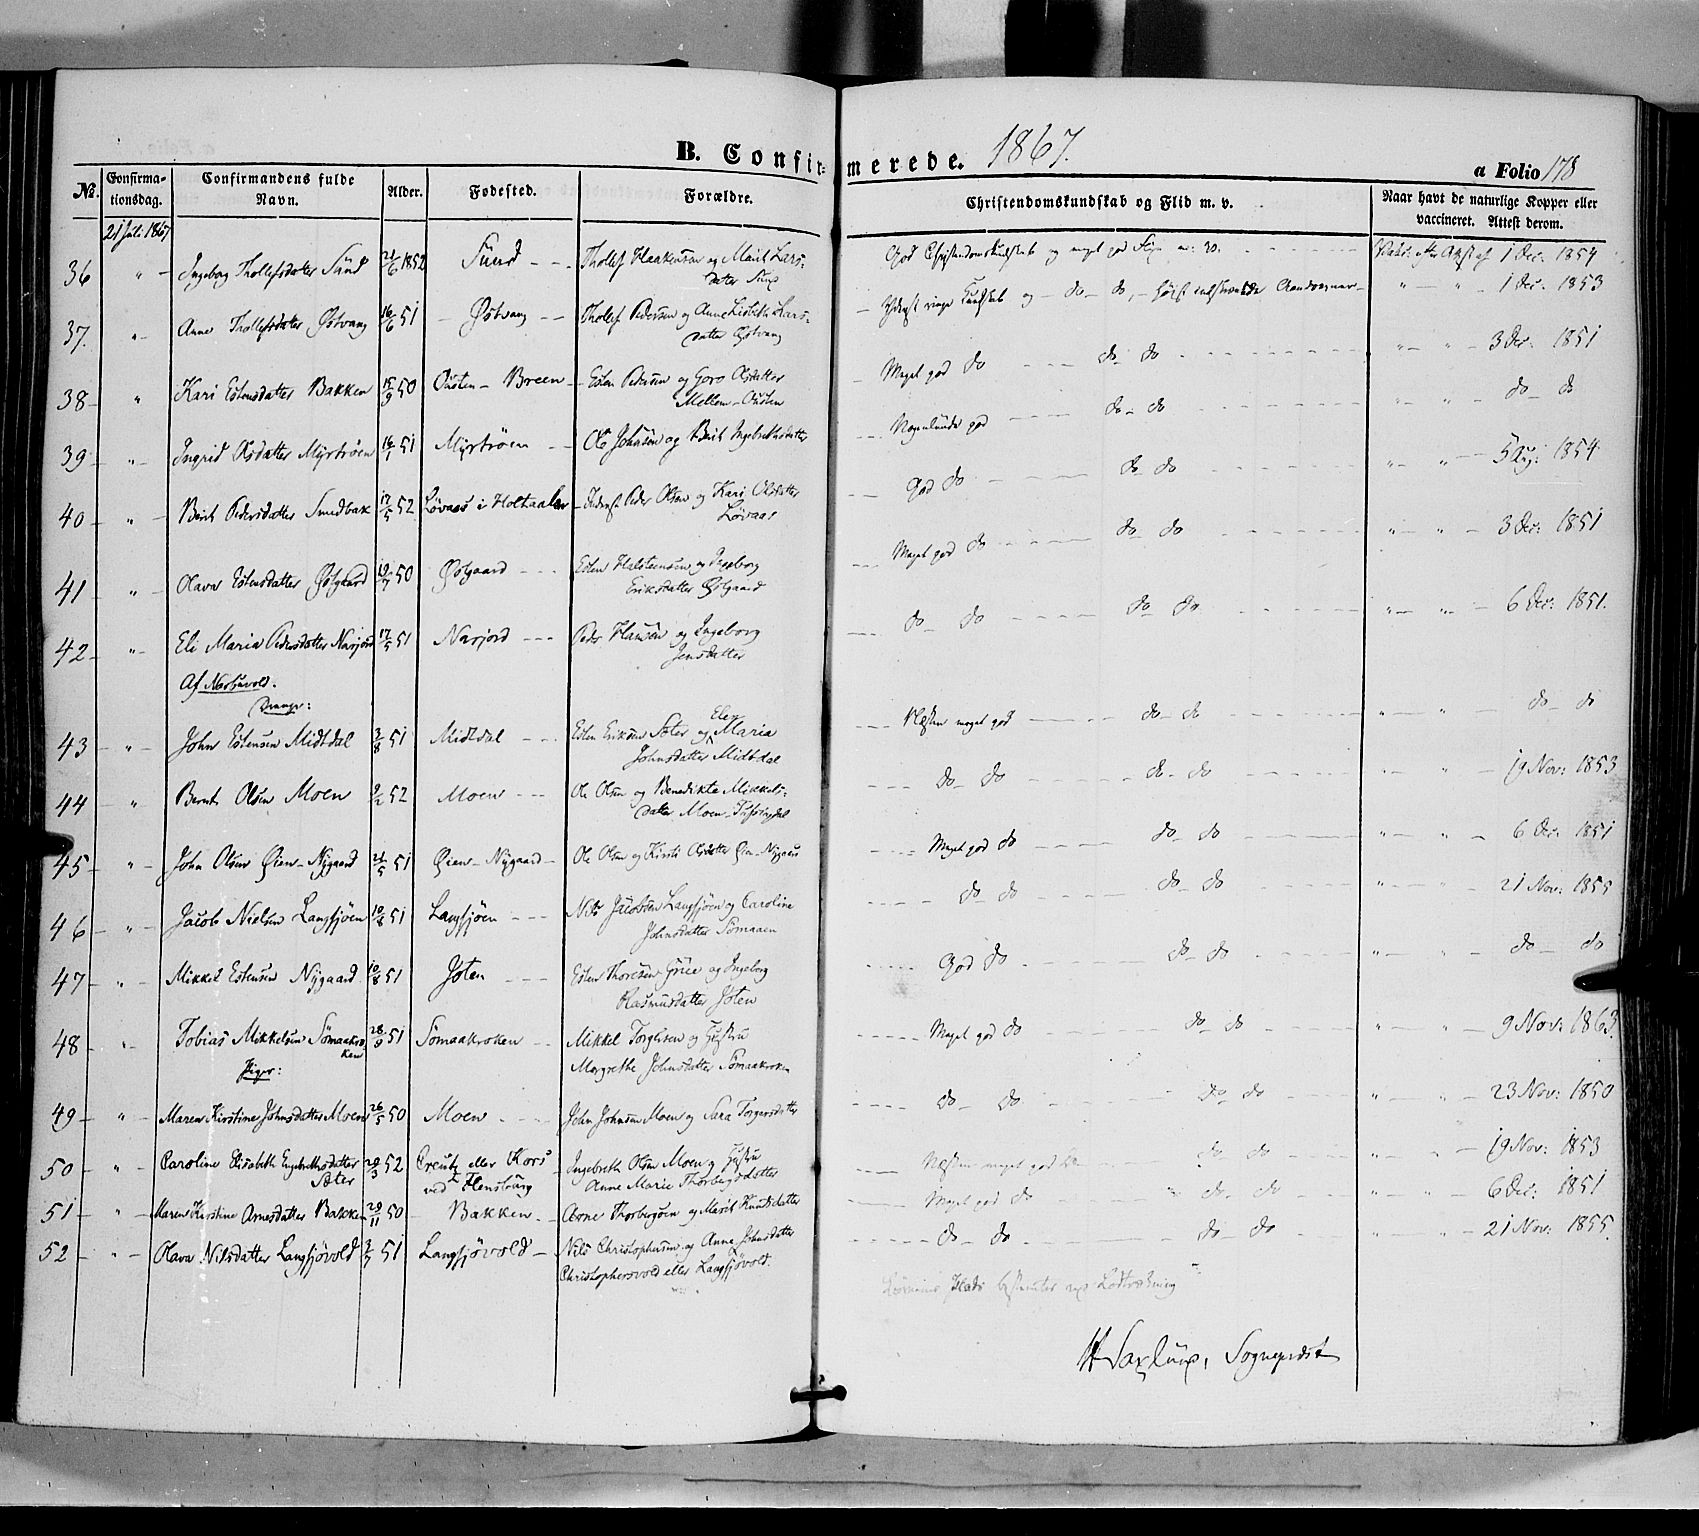 B. Confirmerede. 1867.
a Folio 178
No. Confirmationsdag. Confirmandens fulde Navn. Alder. Fødested. Forældre. Christendomskundskab og Flid m. v. Naar havt de naturlige Kopper eller vaccineret. Attest derom.
21 Juli 1867
36 " Ingebog Thollefsdatter Sund 21/6 1852 Sund Tholef Haakensen og Marit Lars- God Christendomskundskab og meget god Flid 1 Dec: 1854
datter Sund
37. " Anne Thollefsdatter Østvang 16/6 51 Østvang Tholef Pedersen og Anne Lisbeth Lars- Yderst ringe Kundskab og do do 1 Dec: 1853
datter Østvang
38 " Kari Estensdatter Bakken 15/9 50 Ousten-Breen Esten Pedersen og Goro Olsdatter Meget god do do do 3 Dec: 1851
Mellem-Ousten
39 " Ingrid Olsdatter Myrtrøen 16/1 51 Myrtrøen Ole Johnsen og Berit Ingebrethsdatter Nogenlunde god do do do do
40 " Berit Pedersdatter Sundbak 17/5 52 Løvaas i Holtaalen Peder Olsen og Kari Olsdatter God do do do 5 Aug: 1854
Løvaas
41 " Olava Estensdatter Østgaard 19/7 50 Østgaard Esten Halsteinsen og Ingeborg Meget god do do do 3 Dec: 1851
Eriksdatter Østgaard
42 " Eli Maria Pedersdatter Narjord 17/5 51 Narjord Peder Hansen og Ingeborg do do do do 6 Dec: 1851.
Jensdatter
Af Narbuvold.
Drenge:
43 " John Estensen Midtdal 3/8 51 Midtdal Esten Eriksen Sæter og Elen Maria Næsten meget god do do do do
Johnsdatter Midtdal
44 " Bernt Olsen Moen 9/2 52 Moen Ole Olsen og Benedikte Mikkels- do do do do 19 Nov: 1853
datter Moen
45 " John Olsen Øien-Nygaard 21/5 51 Øien-Nygaard Ole Olsen og Kirsti Olsdatter Øien-Nygaard Meget god do do do 6 Dec: 1851
46 " Jacob Nielsen Langsjøen 10/8 51 Langsjøen Nils Jacobsen Langsjøen og Caroline do do do do 21 Nov: 1855
Johnsdatter Sømaaen
47 " Mikkel Estensen Nygaard 10/8 51 Joten Esten Thoresen Grue og Ingeborg God do do do do do
Rasmusdatter Joten
48 " Tobias Mikkelsen Sømaakro- 28/9 51 Sømaakroken Mikkel Torgersen og Hustru Meget god do do do 9 Nov: 1863.
ken Margrethe Johnsdatter Sømaakroken
Piger:
49 " Maren Kirstine Johnsdatter Moen 26/5 50 Moen John Johnsen Moen og Sara Torgersdatter do do do do 23 Nov: 1850
50 " Caroline Elisabeth Engebrethsdatter 29/3 52 Creutz eller Kors Ingebreth Olsen Moen og Hustru Næsten meget god do do do 19 Nov: 1853
Sæter ved Flensburg Anne Marie Thorbergsdatter
51 " Maren Kirstine Arnesdatter Bakken 29/11 50 Bakken Arne Thorbergsen og Marit Knutsdatter Meget god do do do 6 Dec: 1851
52 " Olava Nilsdatter Langsjøvold 3/7 51 Langsjøvold Nils Christophersen og Anne Johnsdatter do do do do 21 Nov: 1855.
Christophersvold eller Langsjøvold.
Saxlund, Sogneprest